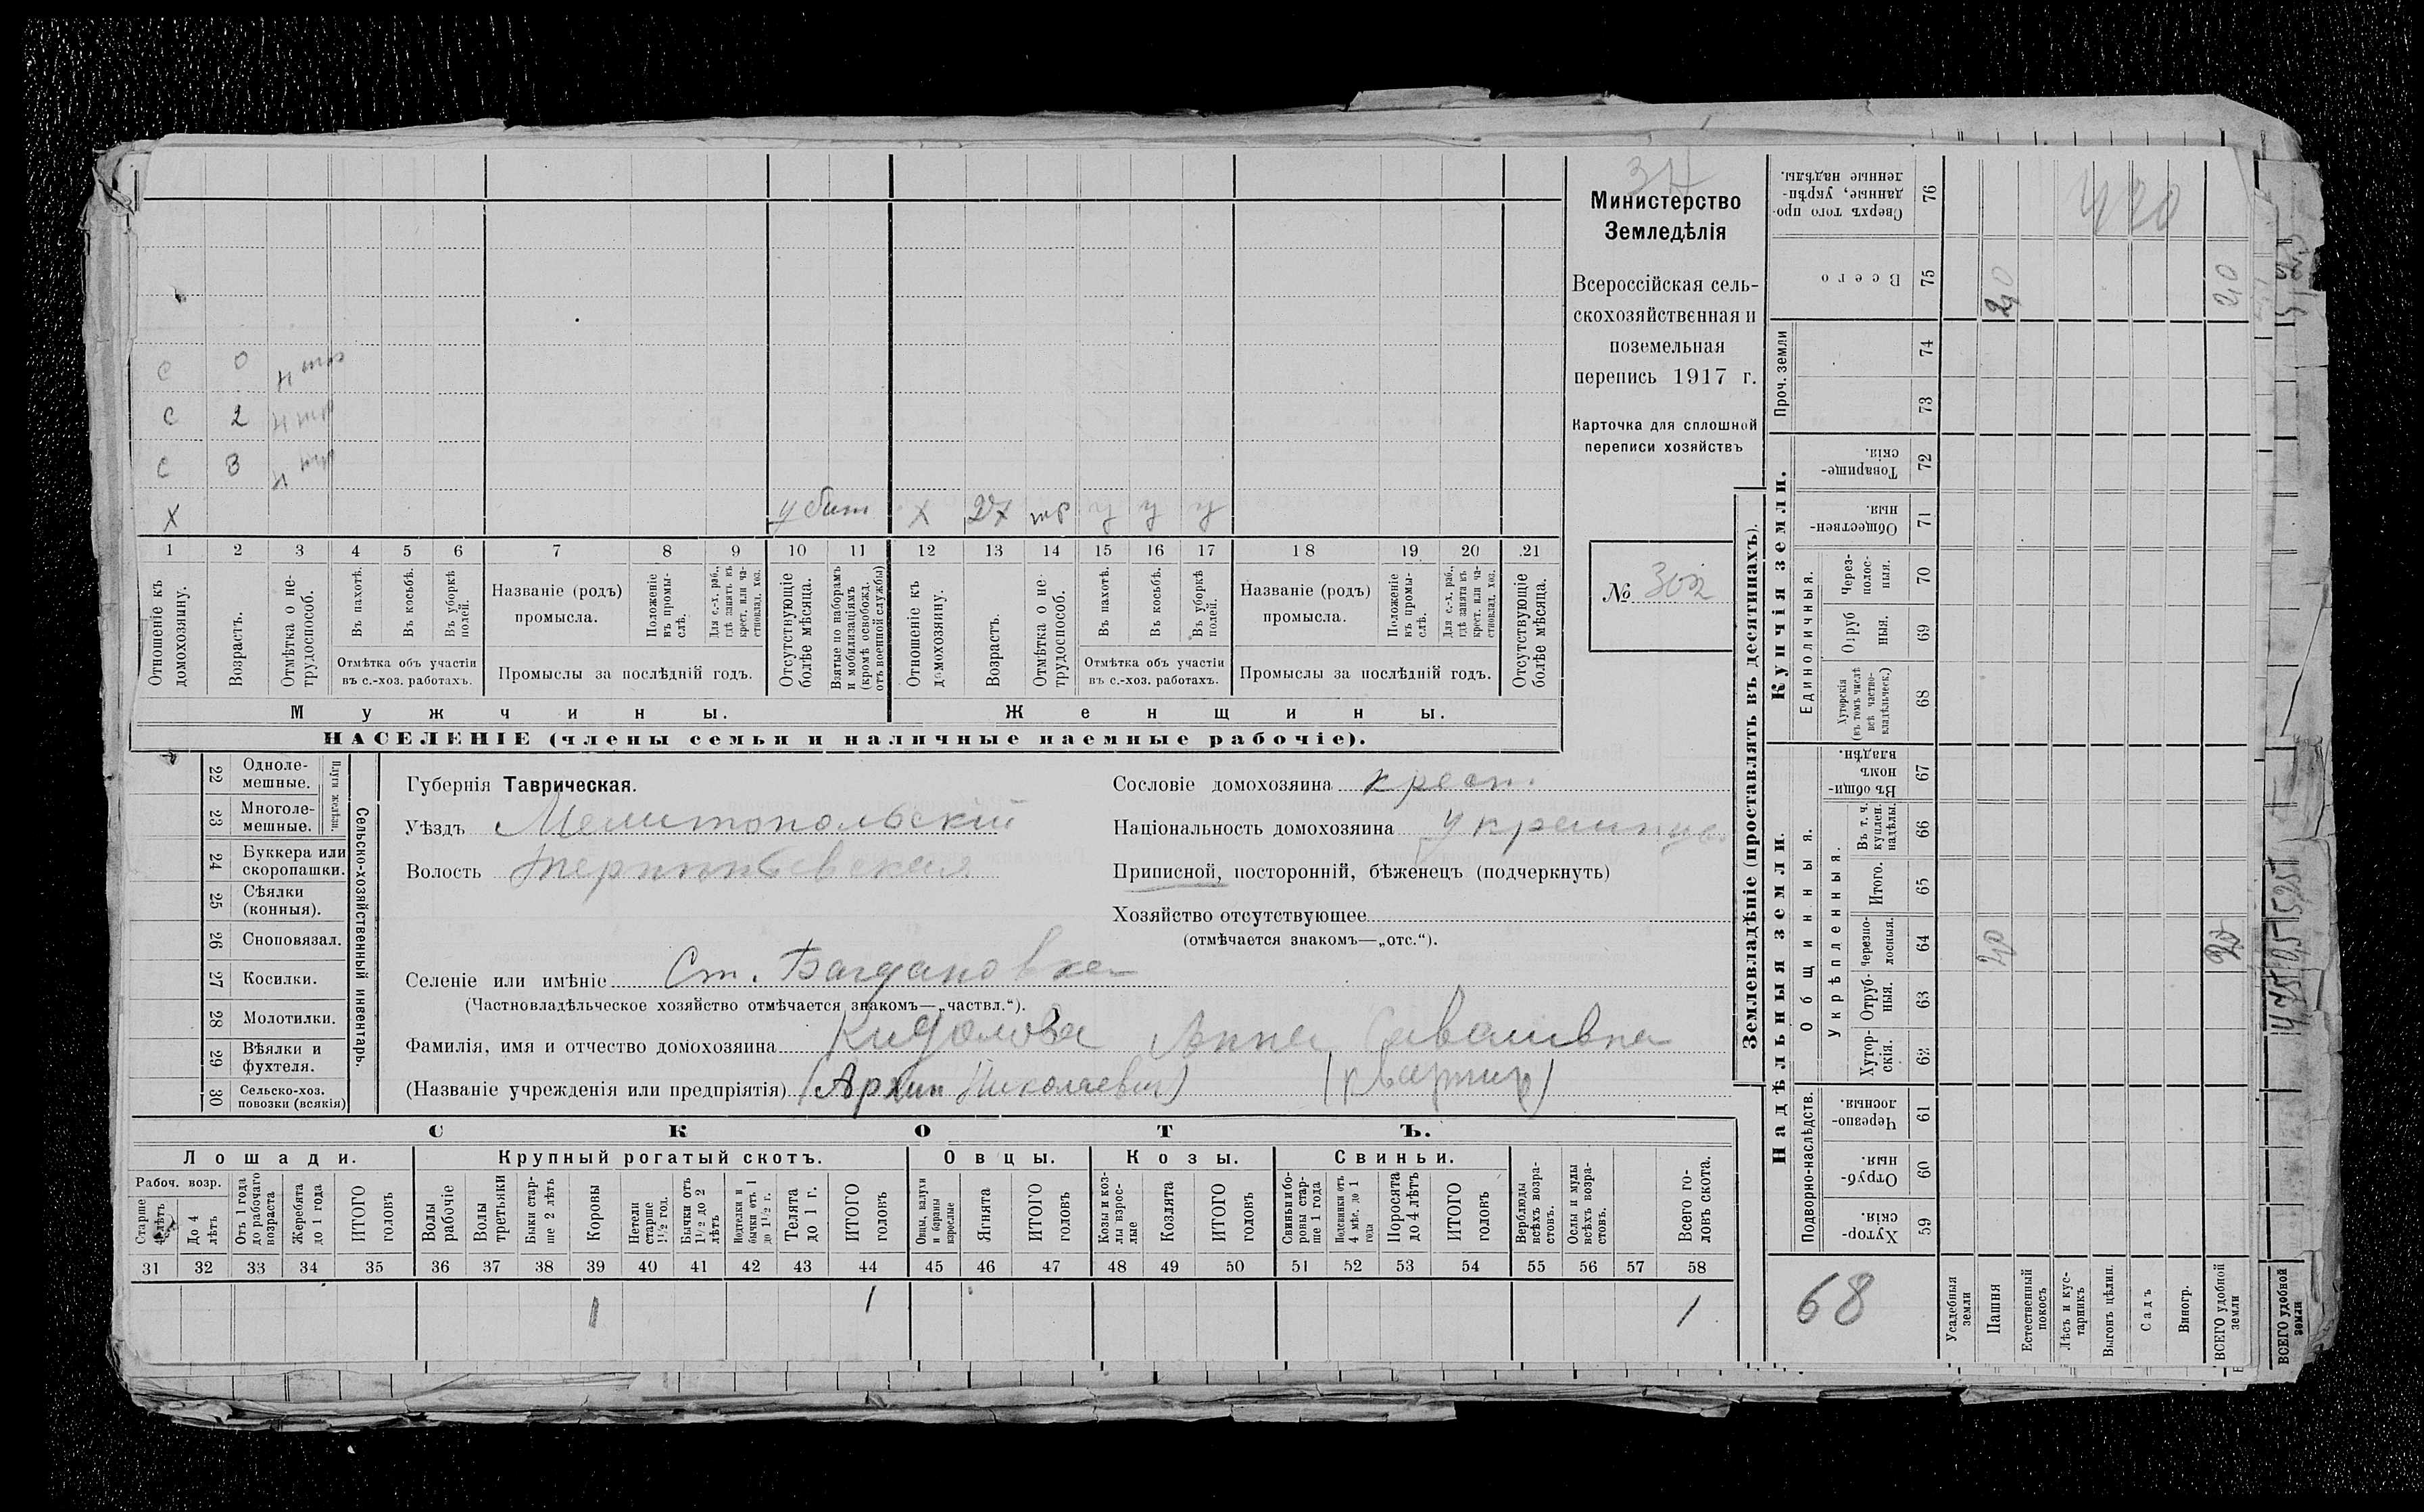 Министерство
Земледѣлія
Всероссійская сель-
скохозяйственная и
поземельная
перепись 1917 г.
Карточка для сплошной
переписи хозяйствъ
№ 302
С 0
С 2
С 3
Х убит Х 27 тр у у у
1 2 3 4 5 6 7 8 9 10 11 12 13 14 15 16 17 18 19 20 21
Отношеніе къ домохозяину.
Возрастъ.
Отмѣтка о не-трудоспособ.
Въ пахотѣ.
Въ косьбѣ.
Въ уборкѣ полей.
Отмѣтка объ участіи
въ с.-хоз. работахъ.
Названіе (родъ)
промысла.
Положеніе въ промы-слѣ.
Для с.-х. раб., гдѣ занятъ въ крест. или ча-стновлад. хоз.
Промыслы за послѣдній годъ.
Отсутствующіе болѣе мѣсяца.
Взятые по наборамъ и мобилизаціямъ (кромѣ освобожд. отъ военной службы)
Отношеніе къ домохозяину.
Возрастъ.
Отмѣтка о не-трудоспособ.
Въ пахотѣ.
Въ косьбѣ.
Въ уборкѣ полей.
Отмѣтка объ участіи
въ с.-хоз. работахъ.
Названіе (родъ)
промысла.
Положеніе въ промы-слѣ.
Для с.-х. раб., гдѣ занята въ крест. или ча-стновлад. хоз.
Промыслы за послѣдній годъ.
Отсутствующіе болѣе мѣсяца.
Мужчины. Женщины.
НАСЕЛЕНІЕ (члены семьи и наличные наемные рабочіе).
22 Одноле-мешные.
23 Многоле-мешные.
Плуги желѣзн.
24 Буккера или скоропашки.
25 Сѣялки (конныя).
26 Сноповязал.
27 Косилки.
28 Молотилки.
29 Вѣялки и фухтеля.
30 Сельско-хоз. повозки (всякія)
Сельско-хозяйственный инвентарь.
Губернія Таврическая.
Уѣздъ Мелитопольскій
Волость Терпиньевская
Селеніе или имѣніе Ст. Багдановка
(Частновладѣльческое хозяйство отмѣчается знакомъ—„частвл.“).
Сословіе домохозяина крест.
Національность домохозяина
Приписной, посторонній, бѣженецъ (подчеркнуть)
Хозяйство отсутствующее
(отмѣчается знакомъ—„отс.“).
Фамилія, имя и отчество домохозяина Анна
(Названіе учрежденія или предпріятія) (Архип Николаевич)
СКОТЪ.
Лошади. Крупный рогатый скотъ. Овцы. Козы. Свиньи.
Рабоч. возр.
Старше лѣтъ
До 4 лѣтъ
Отъ 1 года до рабочаго возраста
Жеребята до 1 года
ИТОГО головъ
Волы рабочіе
Волы третьяки
Быки стар-ше 2 лѣтъ
Коровы
Нетели старше 1½ год.
Бычки отъ 1½ до 2 лѣтъ
Нетелки и бычки отъ 1 до 1½ г.
Телята до 1 г.
ИТОГО головъ
Овцы, валухи и бараны взрослые
Ягнята
ИТОГО головъ
Козы и коз-лы взрос-лые
Козлята
ИТОГО головъ
Свиньи и бо-ровы стар-ше 1 года
Подсвинки отъ 4 мѣс. до 1 года
Поросята до 4 лѣтъ
ИТОГО головъ
Верблюды всѣхъ возра-стовъ.
Ослы и мулы всѣхъ возра-стовъ.
Всего го-ловъ скота.
31 32 33 34 35 36 37 38 39 40 41 42 43 44 45 46 47 48 49 50 51 52 53 54 55 56 57 58
1 1 1
Землевладѣніе (проставлять въ десятинахъ).
Сверхъ того про-данные, укрѣп-ленные надѣлы. 76
Всего 75 20 20
Проч. земли 74 73
Купчія земли.
Товарище-скія. 72
Обществен-ныя. 71
Единоличныя.
Через-полос-ныя. 70
Отруб ныя. 69
Хуторскія (въ томъ числѣ всѣ частно-владѣльческ.) 68
Надѣльныя земли.
Въ общи-номъ владѣн. 67
Общинныя.
Укрѣпленныя.
Въ т. ч. куплен. надѣлы. 66
Итого. 65
Черезпо-лосныя. 64 20 20
Отруб-ныя. 63
Хутор-скія. 62
Подворно-наслѣдств.
Черезпо-лосныя. 61
Отруб-ныя. 60
Хутор-скія. 59
68
Усадебныя земли
Пашня
Естественный покосъ
Лѣсъ и кус-тарникъ
Выгонъ цѣлин.
Садъ
Виногр.
ВСЕГО удобной земли
ВСЕГО удобной земли